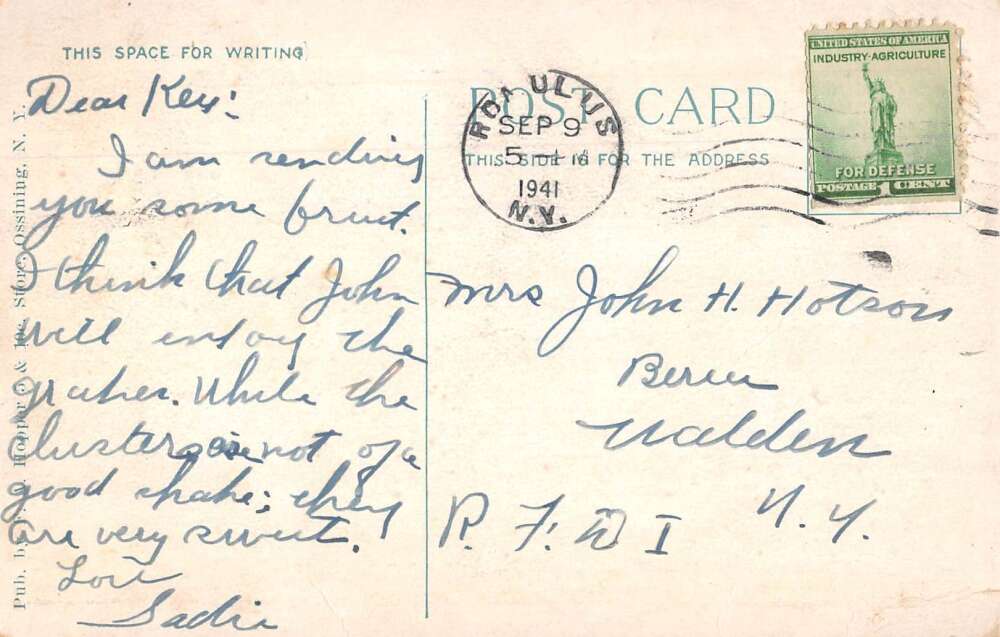 THIS SPACE FOR WRITING
Dear Key:
I am sending
you some fruit.
I think that John
will enjoy the
While the
clusters not of a
good shape; they
are very sweet.
Love
Sadie
Pub. by Hopper & Inc. Store, Ossining, N. Y.
POST CARD
THIS SIDE IS FOR THE ADDRESS
ROMULUS
SEP 9
5
1941
N.Y.
UNITED STATES OF AMERICA
INDUSTRY-AGRICULTURE
FOR DEFENSE
POSTAGE 1 CENT
Mrs John H. Hotson
Walden
N.Y.
R. F. D I